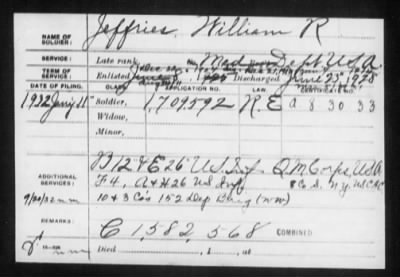 Jeffries, William R
NAME OF SOLDIER:
SERVICE: Late rank, Med Dept U.S.A
TERM OF SERVICE: Enlisted Discharged June 25, 1928
DATE OF FILING. CLASS. APPLICATION NO. LAW. CERTIFICATE NO.
1932 Jany 11 Soldier, 1,709,592 R.E A 8 30 33
Widow,
Minor,
B 12 & E 26" U.S. Inf. Q M Corps, U.S.A
ADDITIONAL SERVICES: F 4, A & H 26 U S Inf 8 Co S. N.Y. U.S.C.A.C
10 & 3 Co's 152 Dep Brig (WW)
REMARKS: C 1,582,568 COMBINED
Died , 1 , at